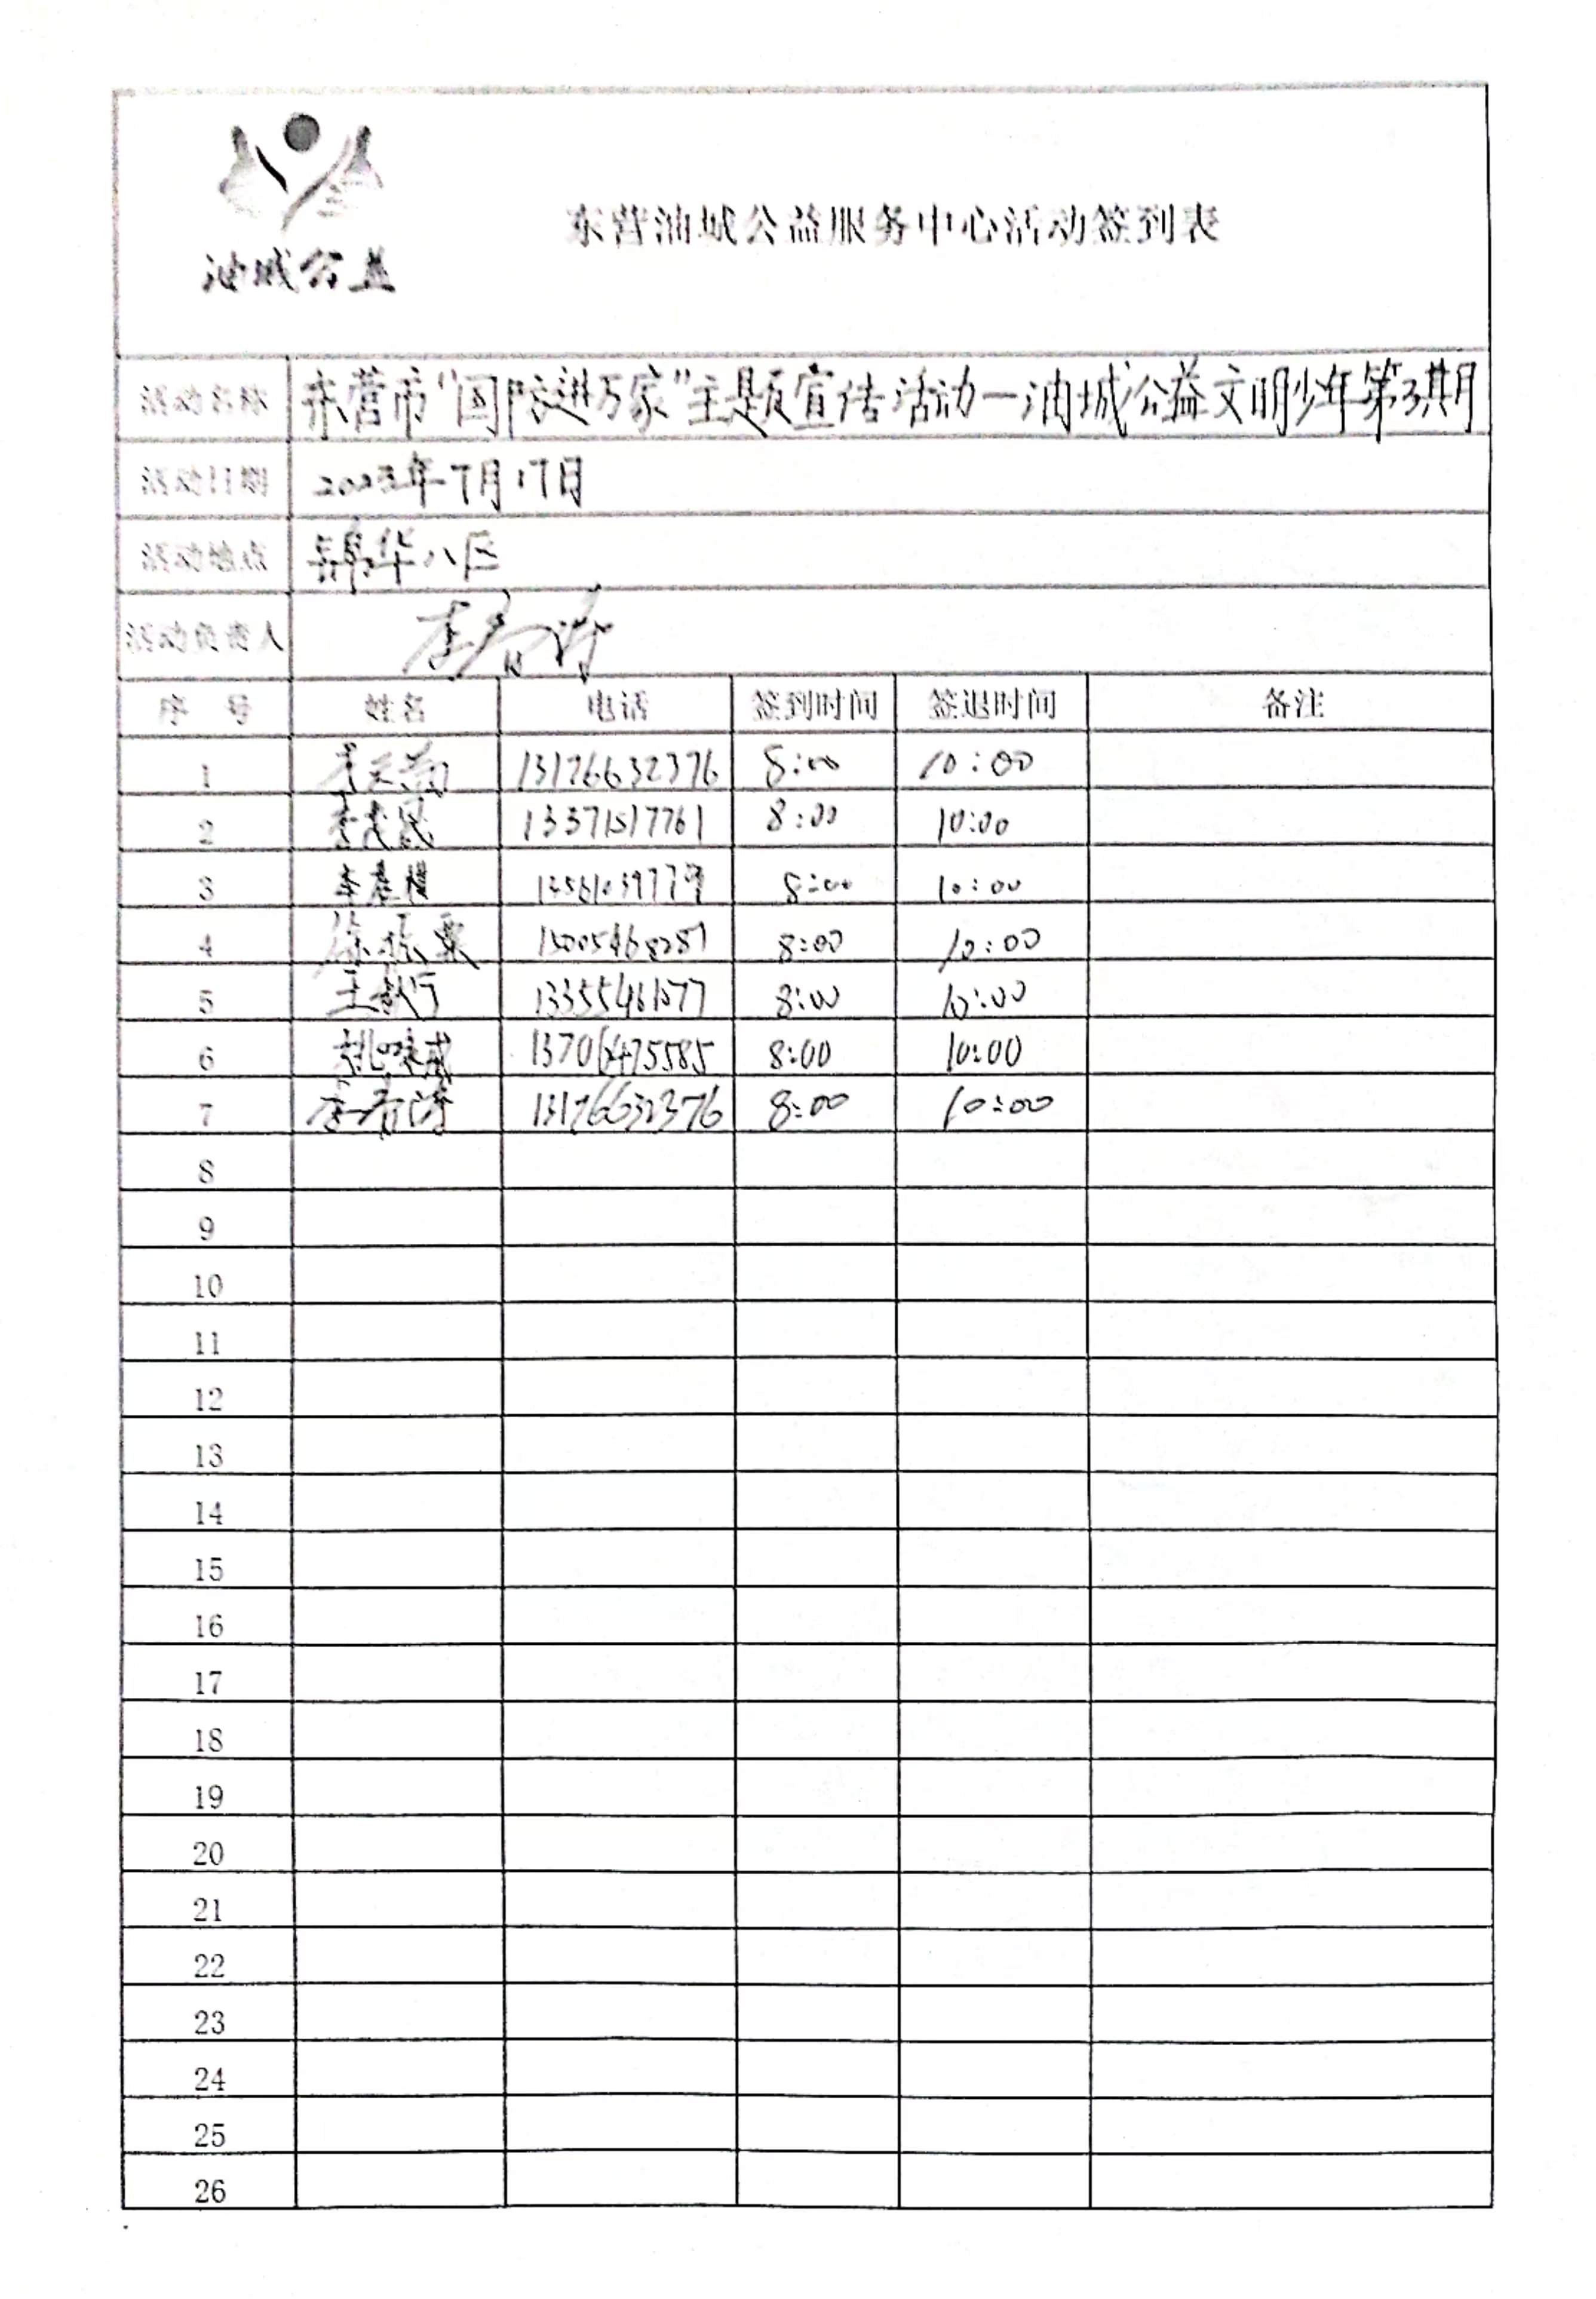 油城公益
东营油城公益服务中心活动签到表
活动名称 东营市“国防进万家”主题宣传活动—油城公益文明少年第3期
活动日期 2023年7月17日
活动地点 锦华八区
活动负责人 李
序 号 姓名 电话 签到时间 签退时间 备注
1 13176632376 8:00 10:00
2 13371517761 8:00 10:00
3 8:00 10:00
4 8:00 10:00
5 8:00 10:00
6 13706475585 8:00 10:00
7 13176632376 8:00 10:00
8
9
10
11
12
13
14
15
16
17
18
19
20
21
22
23
24
25
26